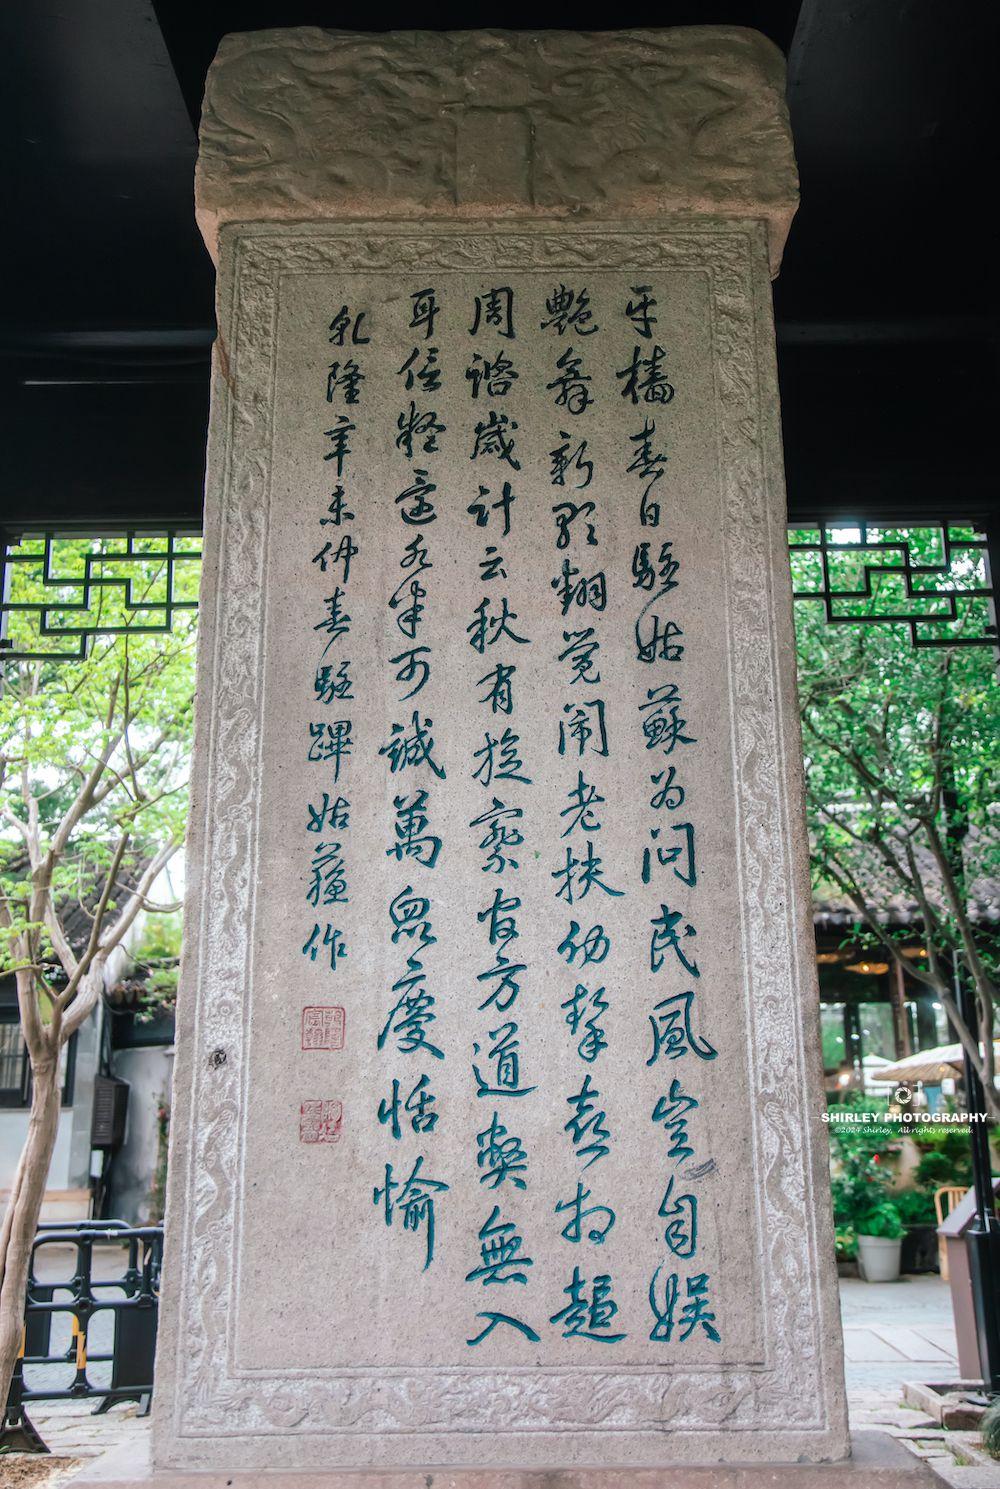 牙檣春日駐姑蘇為問民風豈自娛
艷舞新歌翻覺鬧老扶幼挈喜相趨
周諮歲計云秋有旋察官方道弊無入
耳信疑還半可誠萬眾慶恬愉
乾隆辛未仲春駐蹕姑蘓作
SHIRLEY PHOTOGRAPHY
©2024 Shirley. All rights reserved.